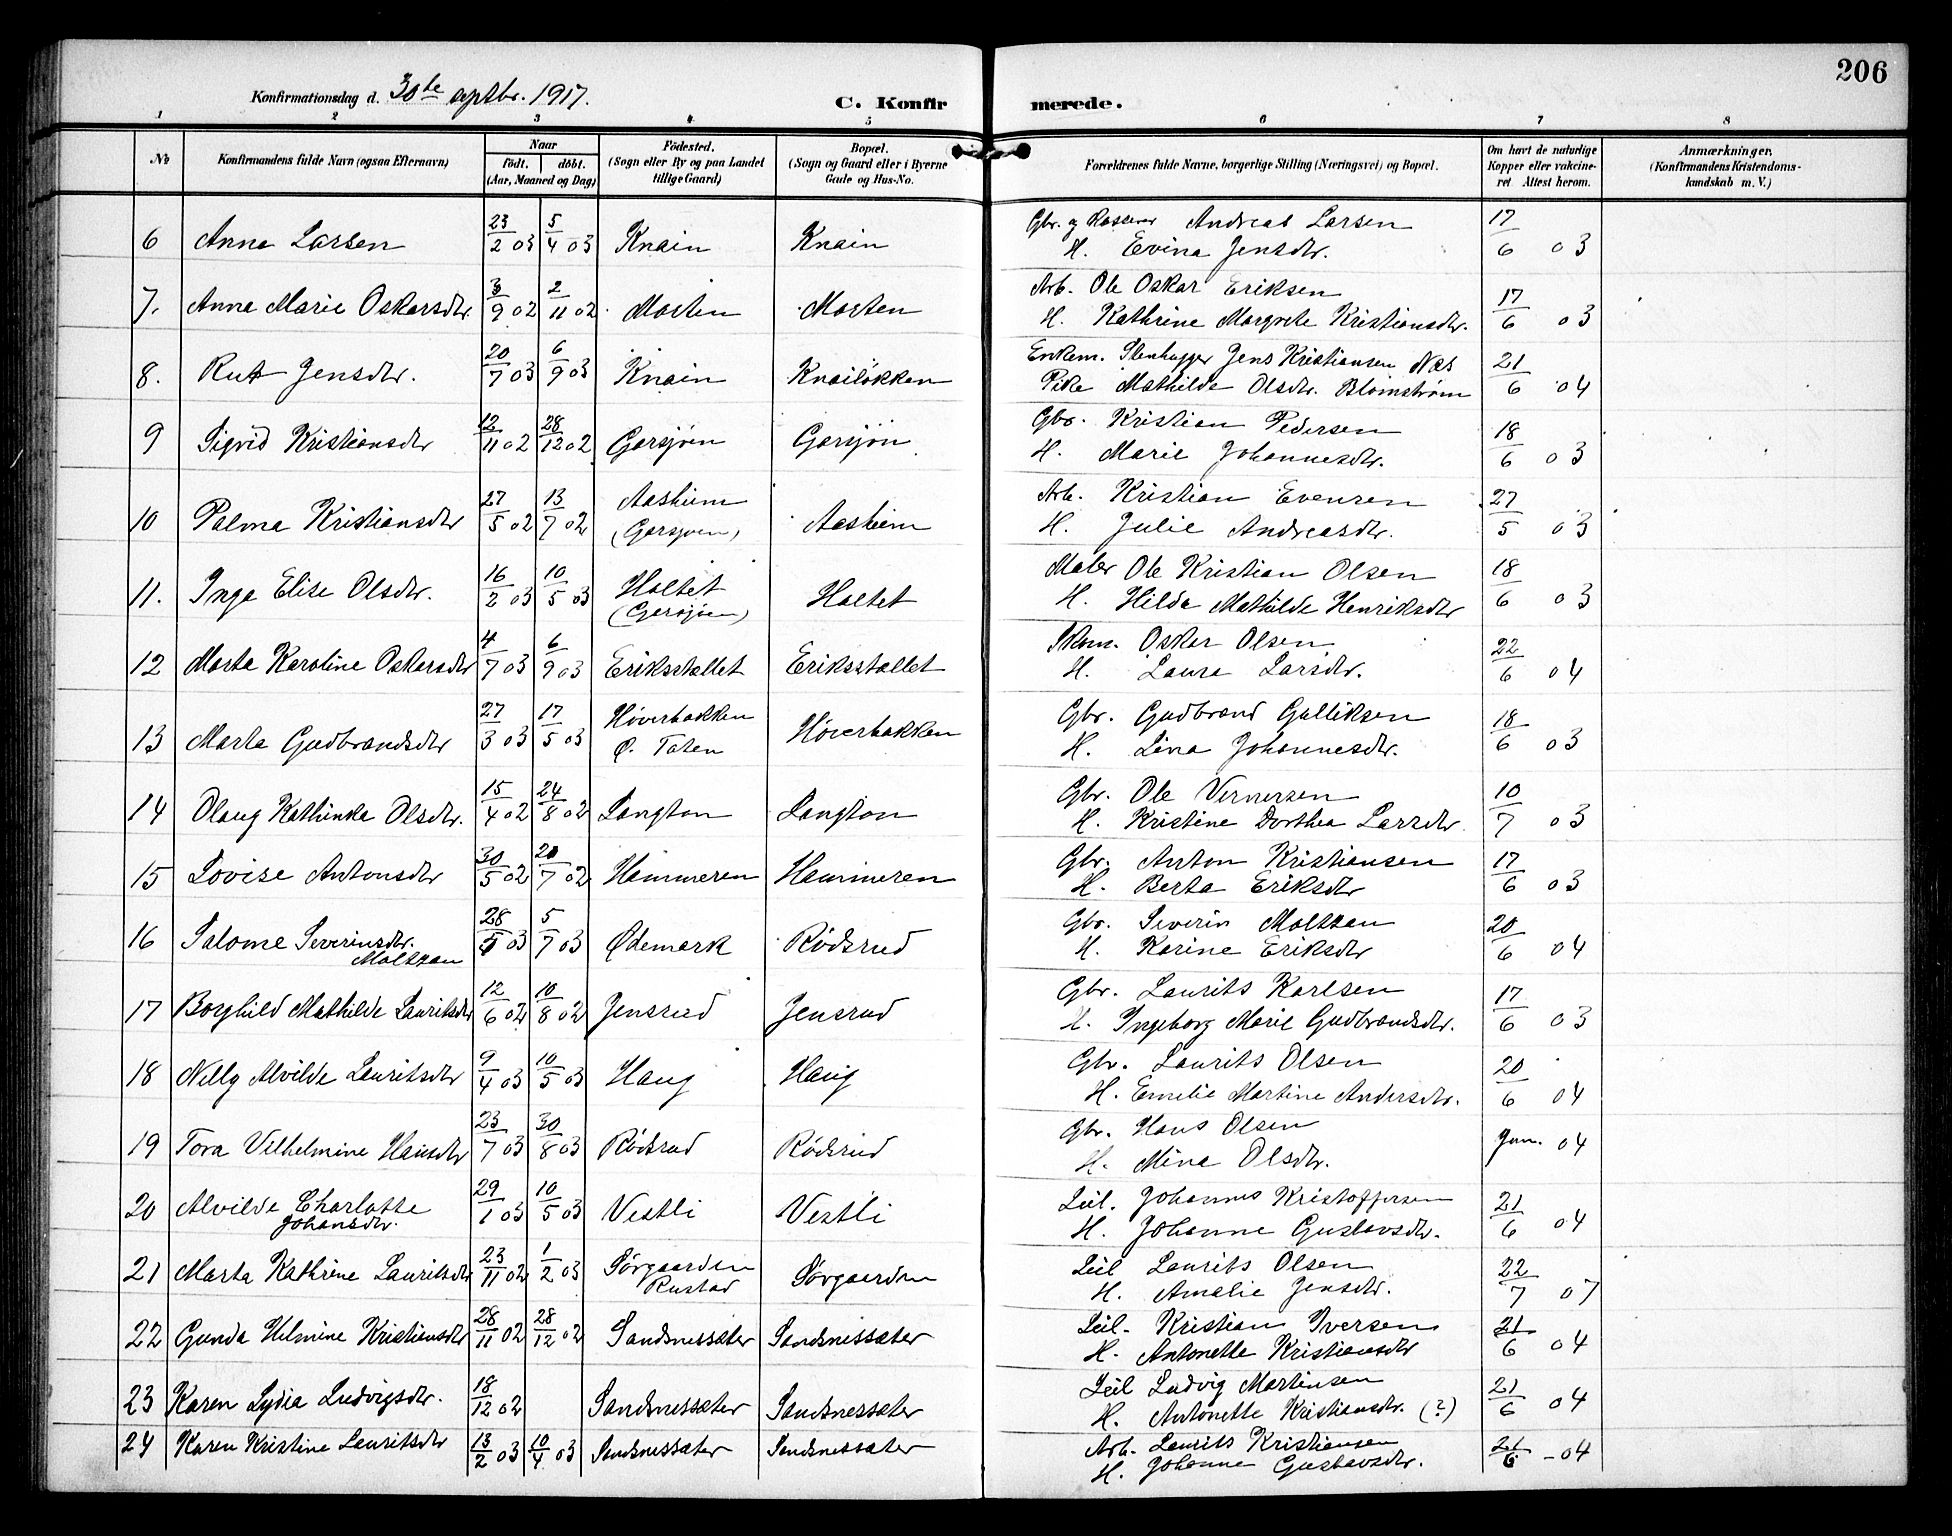 206
Konfirmationsdag d. 30te septbr. 1917.
C. Konfirmerede.
1 2 3 4 5 6 7 8
No
Konfirmandens fulde Navn (ogsaa Efternavn)
Naar
født. døbt.
(Aar, Maaned og Dag)
Fødested.
(Sogn eller By og paa Landet
tillige Gaard)
Bopæl.
(Sogn og Gaard eller i Byerne
Gade og Hus-No.
Forældrenes fulde Navne, borgerlige Stilling (Næringsvei) og Bopæl.
Om havt de naturlige
Kopper eller vakcine-
ret Attest herom.
Anmærkninger,
(Konfirmandens Kristendoms-
kundskab m. V.)
6 Anna Larsen 23/2 03 5/4 03 Knain Knain Gbr. og Andreas Larsen 17/6 03
H. Evina Jensdtr.
7. Anna Marie Oskarsdtr. 3/9 02 2/11 02 Morten Morten Arb. Ole Oskar Eriksen 17/6 03
H. Kathrine Margrete Kristiansdtr.
8. Rut Jensdtr. 20/7 03 6/9 03 Knain Knailøkken Enkem. Stenhugger Jens Kristiansen Næs 21/6 04
Pike Mathilde Olsdtr. Blomstrøm
9 Sigrid Kristiansdtr 12/11 02 28/12 02 Garsjøen Garsjøn Gbr. Kristian Pedersen 18/6 03
H. Marie Johannesdtr.
10 Palma Kristiansdtr 27/5 02 13/7 02 Aasheim (Garsjøen) Aasheim Arb. Kristian Evensen 27/5 03
H. Julie Andreasdtr.
11. Inga Elise Olsdtr. 16/2 03 10/5 03 Holtet (Garsjøen) Holtet Maler Ole Kristian Olsen 18/6 03
H. Hilda Mathilde Henriksdtr
12 Marta Karoline Oskarsdtr 4/7 03 6/9 03 Eriksstallet Eriksstallet Skom. Oskar Olsen 22/6 04
H. Laura Larsdtr.
13 Marta Gudbrandsdtr 27/3 03 17/5 03 Høverbakken Ø. Toten Høverbakken Gbr. Gudbrand Gulliksen 18/6 03
H. Lina Johannesdtr.
14 Olaug Kathinka Olsdtr. 15/4 02 24/8 02 Langton Langton Gbr. Ole Vernersen 10/7 03
H. Kristine Dorthea Larsdtr
15 Lovise Antonsdtr 30/5 02 20/7 02 Hammeren Hammeren Gbr. Anton Kristiansen 17/6 03
H. Berta Eriksdtr
16 Salome Severinsdtr. Moltzau 28/5 03 5/7 03 Ødemark Rødsrud Gbr. Severin Moltzau 20/6 04
H. Karine Eriksdtr
17 Borghild Mathilde Lauritsdtr 12/6 02 10/8 02 Jensrud Jensrud Gbr. Laurits Karlsen 17/6 03
H. Ingeborg Marie Gudbrandsdtr.
18 Nelly Alvilde Lauritsdtr 9/4 03 10/5 03 Haug Haug Gbr. Laurits Olsen 20/6 04
H. Emelie Martine Andersdtr.
19 Tora Vilhelmine Hansdtr 23/7 03 30/8 03 Rødsrud Rødsrud Gbr. Hans Olsen Jun. 04
H. Mina Olsdtr.
20 Alvilde Charlotte Johansdtr. 29/1 03 10/5 03 Vestli Vestli Leil. Johannes Kristoffersen 21/6 04
H. Johanne Gustavsdtr.
21 Marta Kathrine Lauritsdtr 23/11 02 1/2 03 Sørgaarden Rustad Sørgaarden Leil Laurits Olsen 22/7 07
H. Amalie Jensdtr.
22 Gunda Helmine Kristiansdtr 28/11 02 28/12 02 Sandsnessæter Sandsnessæter Leil. Kristian Iversen 21/6 04
H. Antonette Kristiansdtr
23 Karen Lydia Ludvigsdtr. 18/12 02 Sandsnessæter Sandsnessæter Leil Ludvig Martinsen 21/6 04
H. Antonette Kristiansdtr. (?)
24 Karen Kristine Lauritsdtr 13/2 03 10/4 03 Sandsnessæter Sandsnessæter Arb. Laurits Kristiansen 21/6 - 04
H. Johanne Gustavsdtr.